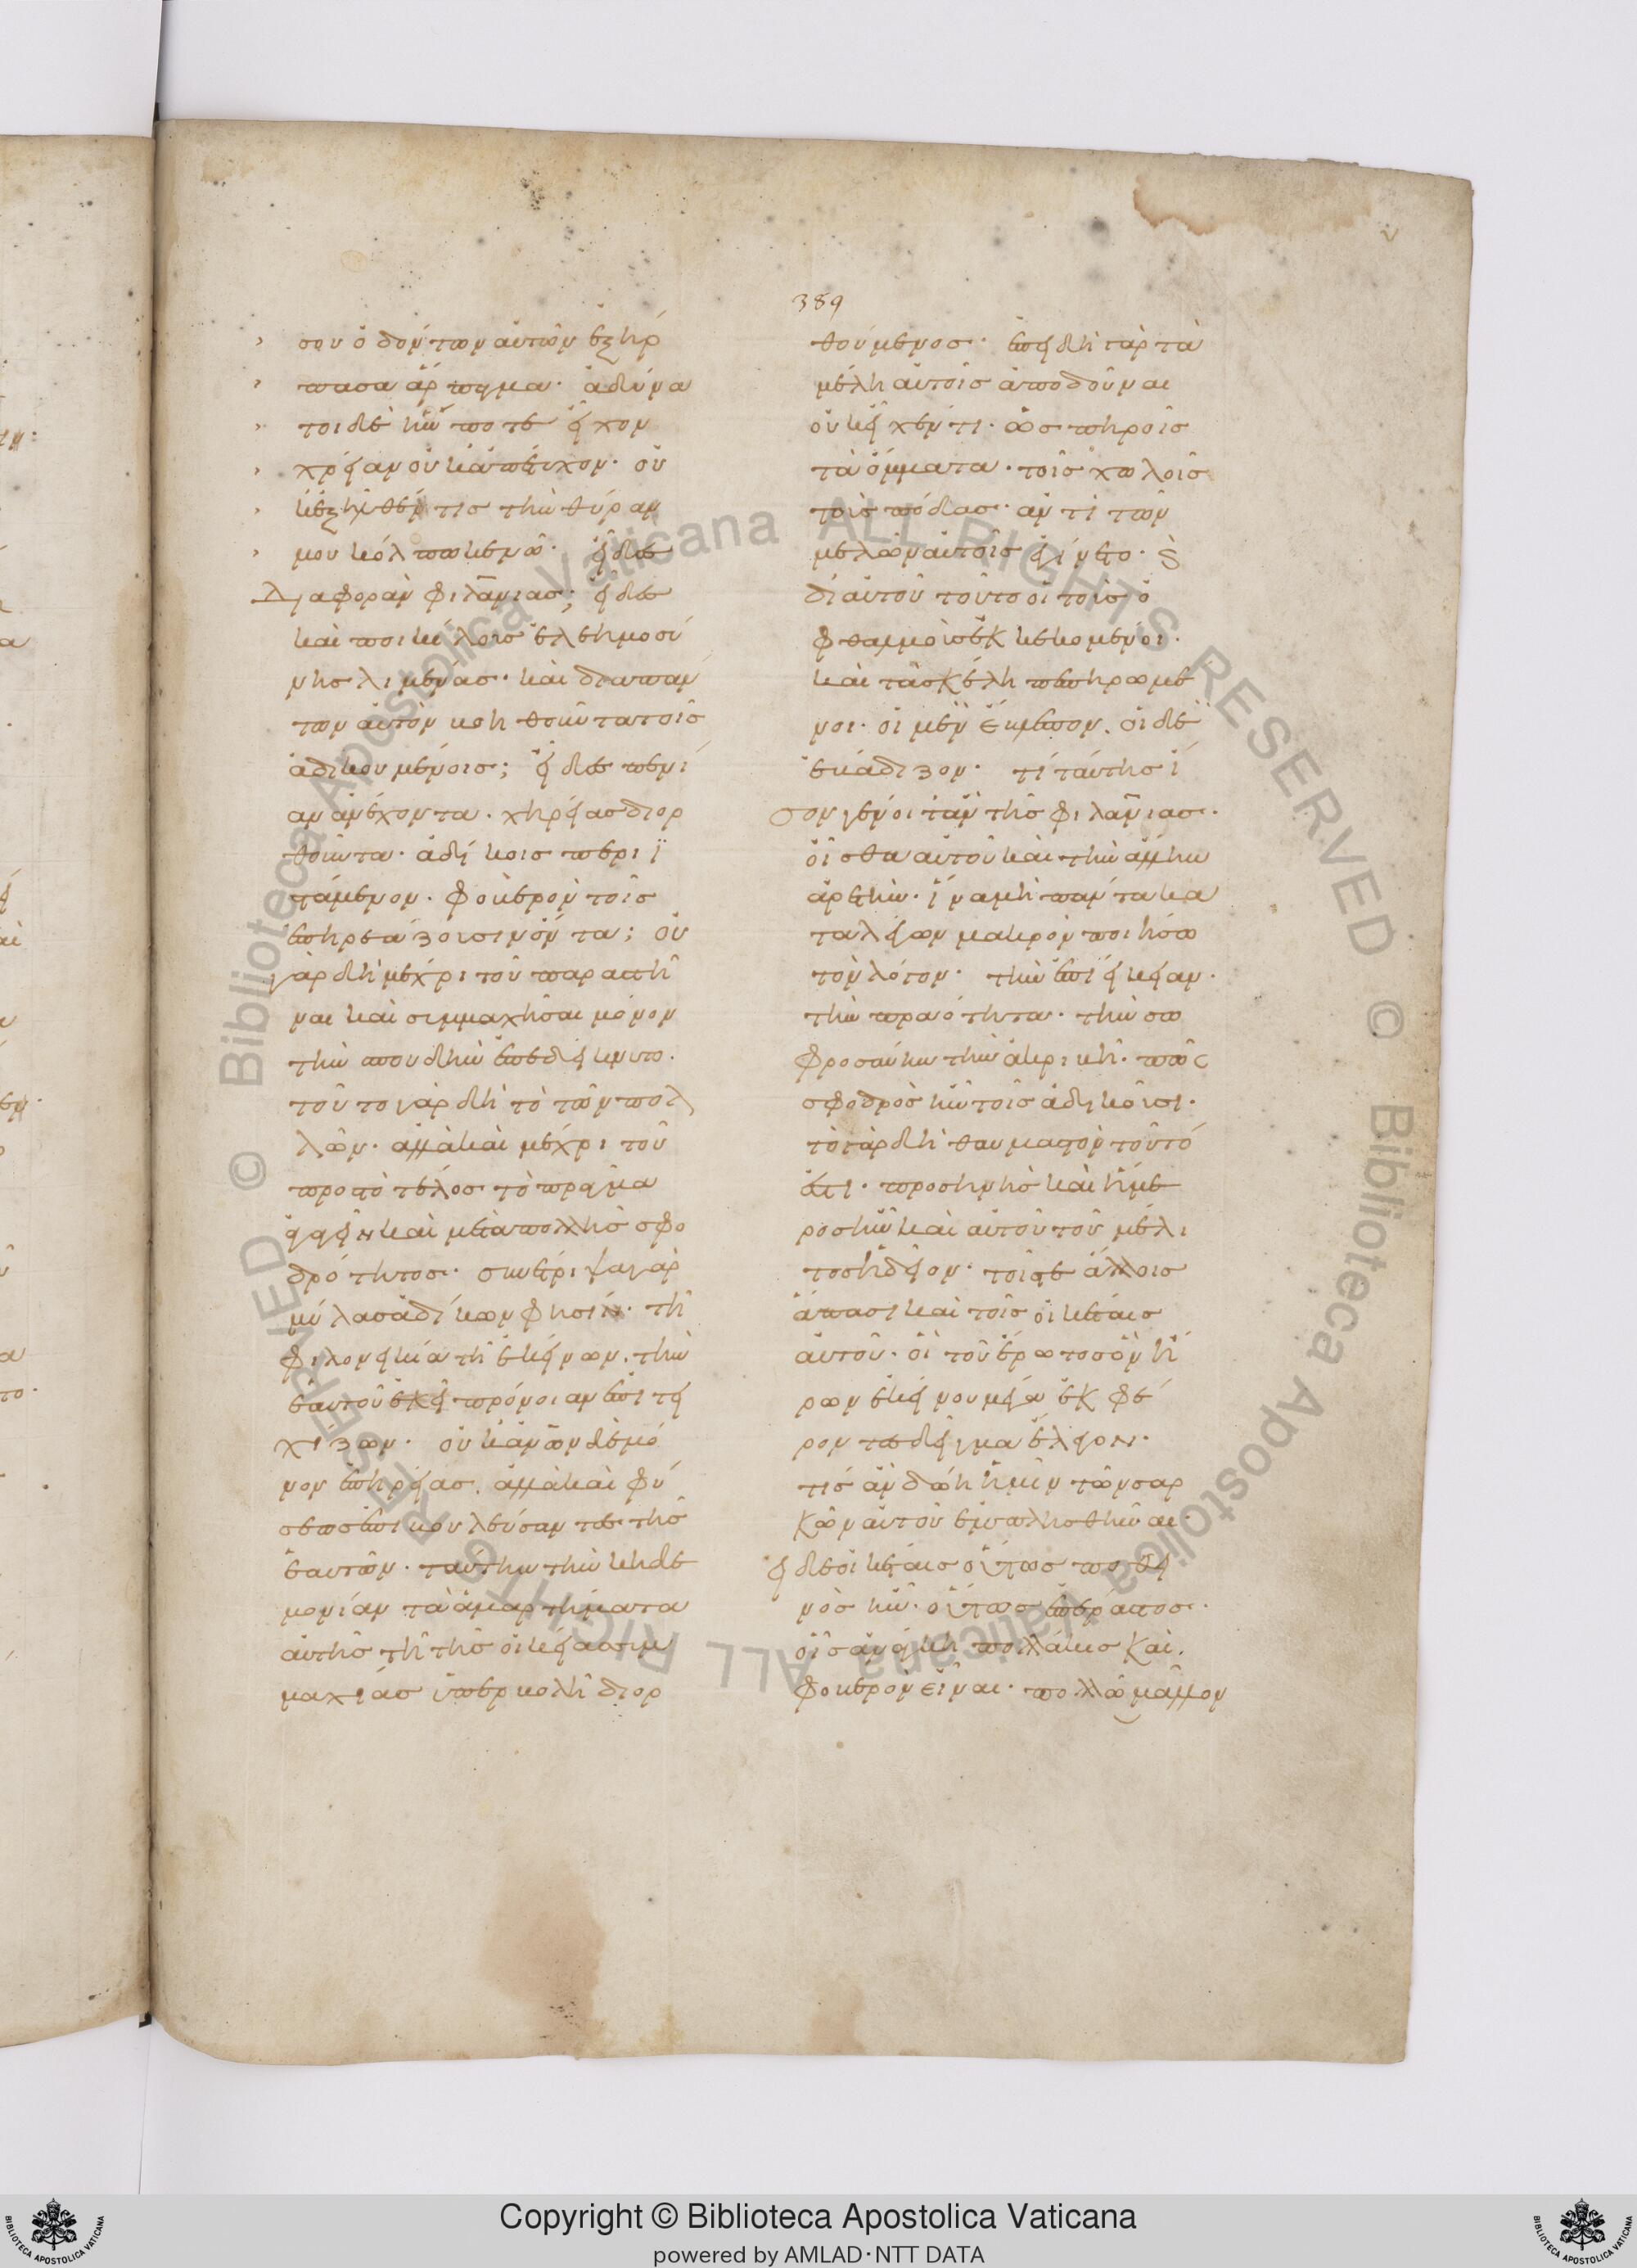 389
σου ὀδόντων αὐτῶν ἐξήρ
πασα ἅρπαγμα· ἀδύνα
τοι δὲ ἥν ποτε εἶχον
χρείαν οὐκ ἀπέτυχον· οὐ
κ ἐξῆλθέν τις τὴν θύραν
μου κόλπω κενῶ· εἶδες
Διαφορὰν φιλανιας; εἶδες
καὶ ποικίλους ἐλεημοσύ
νης λιμένας· καὶ διαπαν
των αὐτὸν βοηθοῦντα τοῖς
ἀδικουμένοις; εἶδες πενί
αν ἀνέχοντα· χήρας διορ
θοῦντα· ἀδίκοις περιϊ
στάμενον· φοβερὸν τοῖς
ἐπηρεάζουσιν ὄντα; οὐ
γὰρ δὴ μέχρι τοῦ παραστῆ
ναι καὶ συμμαχῆσαι μόνον
τὴν σπουδὴν ἐπεδείκνυτο.
τοῦτο γὰρ δὴ τὸ τῶν πολ
λῶν· ἀλλὰ καὶ μέχρι τοῦ
πρὸς τὸ τέλος τὸ πρᾶγμα
ἀγαγεῖν καὶ μετὰ πολλῆς σφο
δρότητος· συνέτριψα γὰρ
μύλας ἀδίκων φησίν· τῆ
φιλονεικία τῆ ἐκείνων. τὴν
ἑαυτοῦ ἐκεῖ πρόνοιαν ἐπιτει
χίζων· οὐκ ἀνῶν δὲ μό
νον ἐπηρείας. ἀλλὰ καὶ φύ
σεως ἐπιβουλεύσαντες τῆς
ἑαυτῶν· ταύτην τὴν κηδε
μονίαν τὰ ἁμαρτήματα
αὐτῆς τῆ τῆς οἰκείας συμ
μαχίας ὑπερβολῆ διορ
θούμενος· ἐπειδὴ γὰρ τὰ
μέλη αὐτοῖς ἀποδοῦναι
οὐκ εἶχεν τι· ὡς πηροῖς
τὰ ὄμματα· τοῖς χωλοῖς
τοὺς πόδας· ἀντὶ τῶν
μελῶν αὐτοῖς ἐγίνετο· ϗ
δι αὐτοῦ τοῦτο οἱ τοὺς ὀ
φθαλμοὺς ἐκκεκομμένοι·
καὶ τὰ σκέλη πεπηρωμέ
νοι· οἱ μὲν ἔβλεπον. οἱ δὲ
ἐβάδιζον· τί ταύτης ἴ
σον γένοιτ ἂν τῆς φιλανιας·
οἶσθα αὐτοῦ καὶ τὴν ἄλλην
ἀρετήν· ἵνα μὴ πάντα κα
ταλέγων μακρὸν ποιήσω
τὸν λόγον· τὴν ἐπιείκειαν·
τὴν πραότητα· τὴν σω
φροσύνην τὴν ἀκριβῆ· πῶς
σφοδρὸς ἦν τοῖς ἀδικοῦσι·
τὸ γὰρ δὴ θαυμαστὸν τοῦτό
ἐστι· προσηνὴς καὶ ἥμε
ρος ἦν καὶ αὐτοῦ τοῦ μέλι
τος ἡδεῖον· τοῖς τε ἄλλοις
ἅπασι καὶ τοῖς οἰκέταις
αὐτοῦ· οἳ τοῦ ἔρωτος ὃν ἤ
ρων ἐκείνου μέγα ἐκφέ
ροντες δεῖγμα ἔλεγον·
τίς ἂν δώη ἡμῖν τῶν σαρ
κῶν αὐτοῦ ἐμπλησθῆναι·
εἰ δὲ οἰκέταις οὕτως ποθει
νὸς ἦν· οὕτως ἐπέραστος·
οἷς ἀνάγκη πολλάκις καὶ.
φοβερὸν εἶναι· πολλῶ μᾶλλον